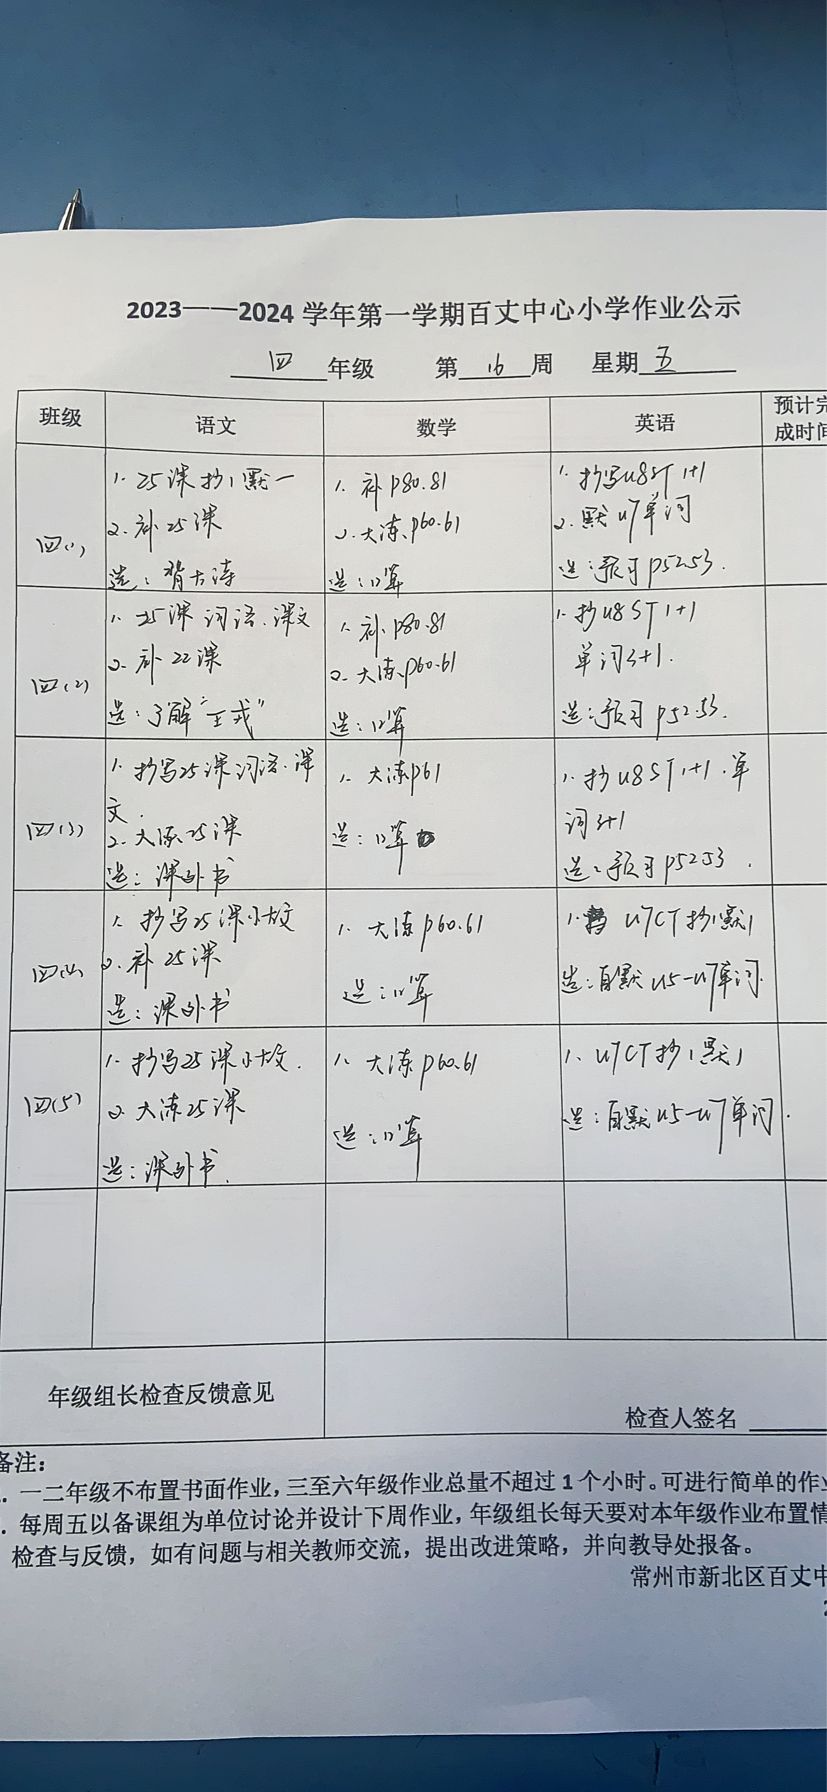 2023——2024 学年第一学期百丈中心小学作业公示
四 年级 第 16 周 星期 五
班级 语文 数学 英语 预计完
成时间
四(1)
1. 25课抄1默一
2. 补25课
选：背古诗
1. 补P80.81
2. 大练P60.61
选：口算
1. 抄写u8ST 1+1
2. 默u7单词
选：预习P52.53.
四(2)
1. 25课 词语.课文
2. 补22课
选：了解“王戎”
1. 补P80.81
2. 大练P60.61
选：口算
1. 抄u8ST 1+1
单词3+1.
选：预习P52.53.
四(3)
1. 抄写25课词语.课
文.
2. 大练25课
选：课外书
1. 大练P61
选：口算
1. 抄u8ST 1+1.单
词3+1
选：预习P52.53.
四(4)
1. 抄写25课小古文
2. 补25课
选：课外书
1. 大练P60.61
选：口算
1. u7CT抄1默1
选：自默u5-u7单词.
四(5)
1. 抄写25课小古文.
2. 大练25课
选：课外书.
1. 大练P60.61
选：口算
1. u7CT抄1默1
选：自默u5-u7单词.
年级组长检查反馈意见
检查人签名
备注：
. 一二年级不布置书面作业，三至六年级作业总量不超过 1 个小时。可进行简单的作业
. 每周五以备课组为单位讨论并设计下周作业，年级组长每天要对本年级作业布置情
检查与反馈，如有问题与相关教师交流，提出改进策略，并向教导处报备。
常州市新北区百丈中
2